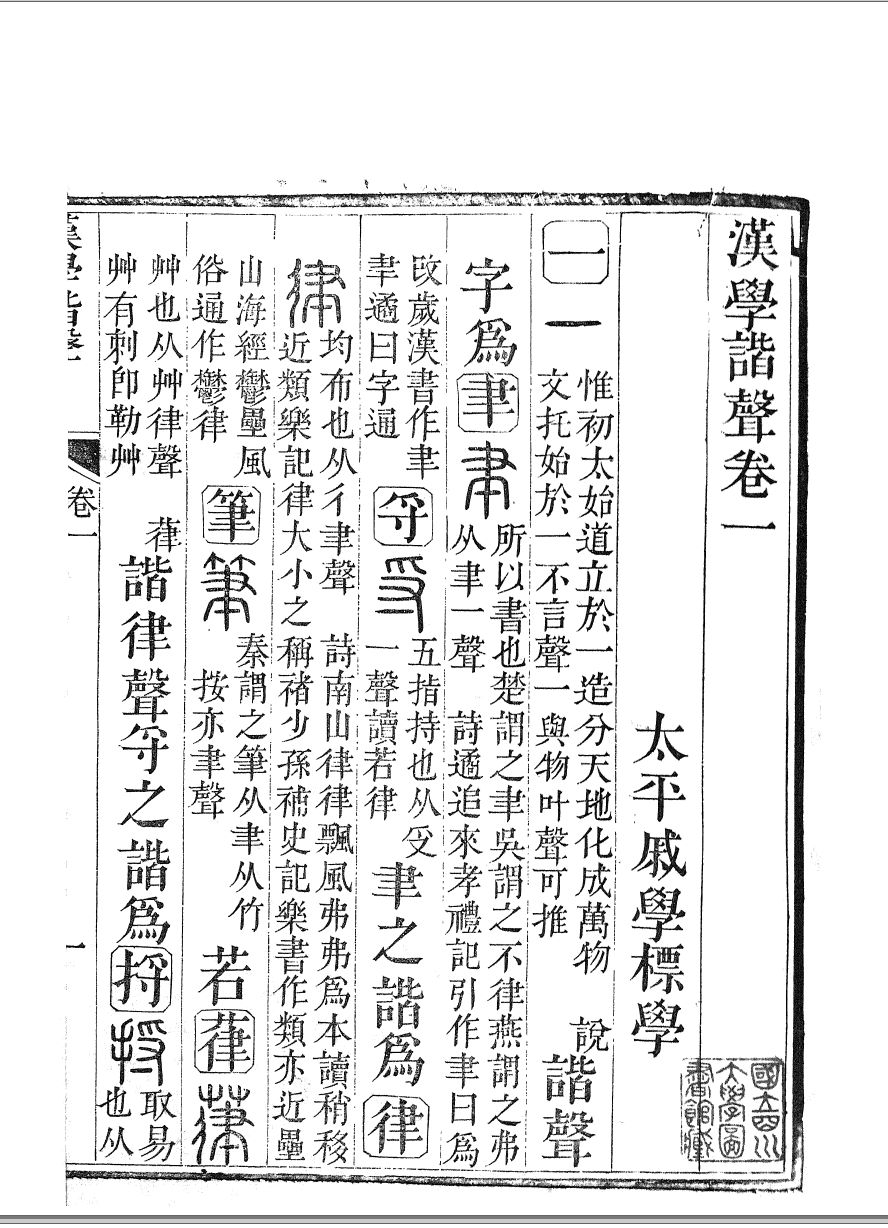 漢學諧聲卷一
太平戚學標學
國立四川
大學圖
書館藏
一 一
惟初太始道立於一造分天地化成萬物 說
文托始於一不言聲一與物叶聲可推
諧聲
字爲聿 聿
所以書也楚謂之聿吳謂之不律燕謂之弗
从聿一聲 詩遹追來孝禮記引作聿曰爲
改歲漢書作聿
聿遹曰字通
寽 寽
五指持也从𠬪
一聲讀若律
聿之諧爲律
律
均布也从彳聿聲 詩南山律律飄風弗弗爲本讀稍移
近類樂記律大小之稱褚少孫補史記樂書作類亦近壘
山海經鬱壘風
俗通作鬱律
筆 筆
秦謂之筆从聿从竹
按亦聿聲
若葎 葎
艸也从艸律聲 葎
艸有刺卽勒艸
諧律聲寽之諧爲捋 捋
取易
也从
漢學諧聲 卷一 一